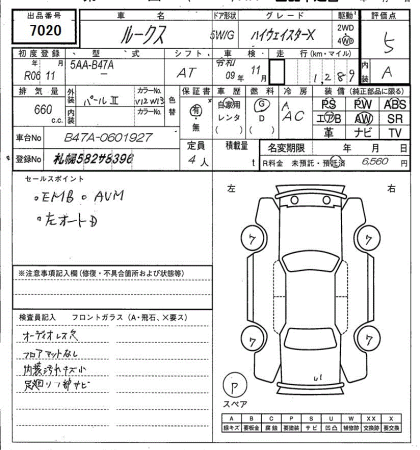 出品番号 車名 ドア形状 グレード 駆動 評価点
7020 ルークス 5W/G ハイウェイスターX 2WD 4WD 5
初度登録 型式 シフト 車検 走行 (km・マイル) 内装
R06年 11月 5AA-B47A AT 令和 09年 11月 1,289 A
排気量 外装 カラーNo. 色替 保証書 車歴 燃料 冷房 装備 (純正部品に限る)
660 c.c. パールⅡ 内装 カラーNo. 有・無 自家用 レンタ ( ) G D ( ) AAC PS PW ABS
エアB AW SR
革 ナビ TV
車台No B47A-0601927 定員 積載量 名変期限 年 月 日
登録No 札幌582サ8396 4人 t R料金 未預託・預託済 6,560円
セールスポイント
。EMB 。AVM
。左オートD
左 右
ワ ワ
ワ ワ
※注意事項記入欄 (修復・不具合箇所および状態等)
検査員記入 フロントガラス (A・飛石、×要ス)
オーディオレス穴
フロアマットなし
内装汚れキズ小
足廻り下部サビ
U1
P
スペア
A B C P S U W X XX
線キズ 要板金 腐蝕 要塗装 サビ 凹凸 補修跡 要交換 交換跡